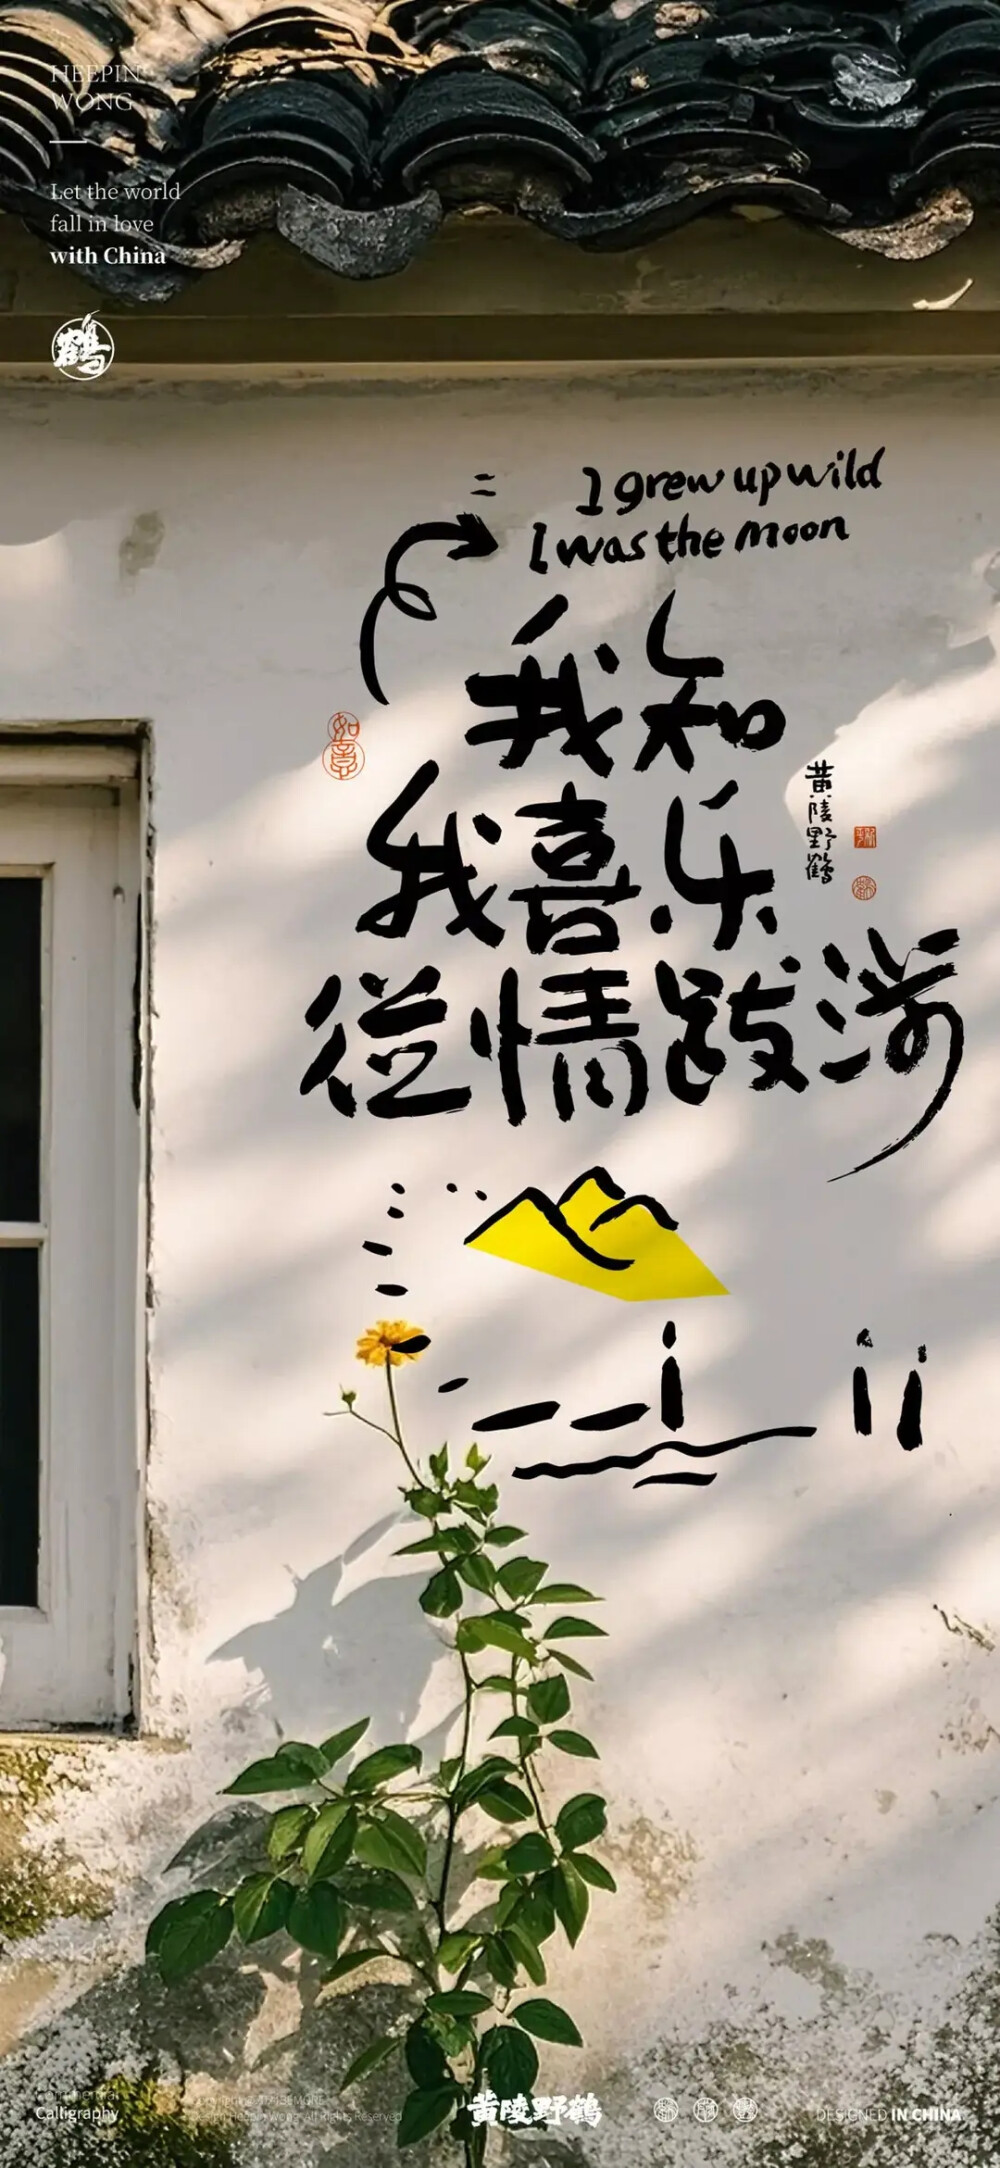 HEEPIN
WONG
Let the world
fall in love
with China
鹤
I grew up wild
I was the moon
我知
我喜乐
从情跋涉
如意
黄陵野鹤
Calligraphy
黄陵野鹤
DESIGNED IN CHINA